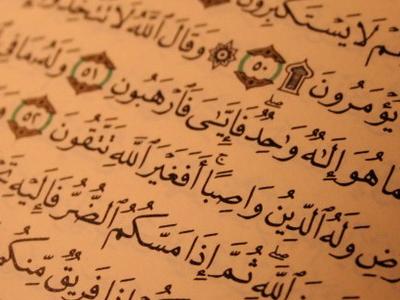 هُمْ لَا يَسْتَكْبِرُونَ
يُؤْمَرُونَ ۩ ٥٠ ۞ وَقَالَ ٱللَّهُ لَا تَتَّخِذُوٓا
مَا هُوَ إِلَٰهٌ وَٰحِدٌ فَإِيَّٰىَ فَٱرْهَبُونِ ٥١ وَلَهُۥ مَا فِى
رْضِ وَلَهُ ٱلدِّينُ وَاصِبًا ۚ أَفَغَيْرَ ٱللَّهِ تَتَّقُونَ ٥٢
ٱللَّهِ ۖ ثُمَّ إِذَا مَسَّكُمُ ٱلضُّرُّ فَإِلَيْهِ
إِذَا فَرِيقٌ مِّنكُ